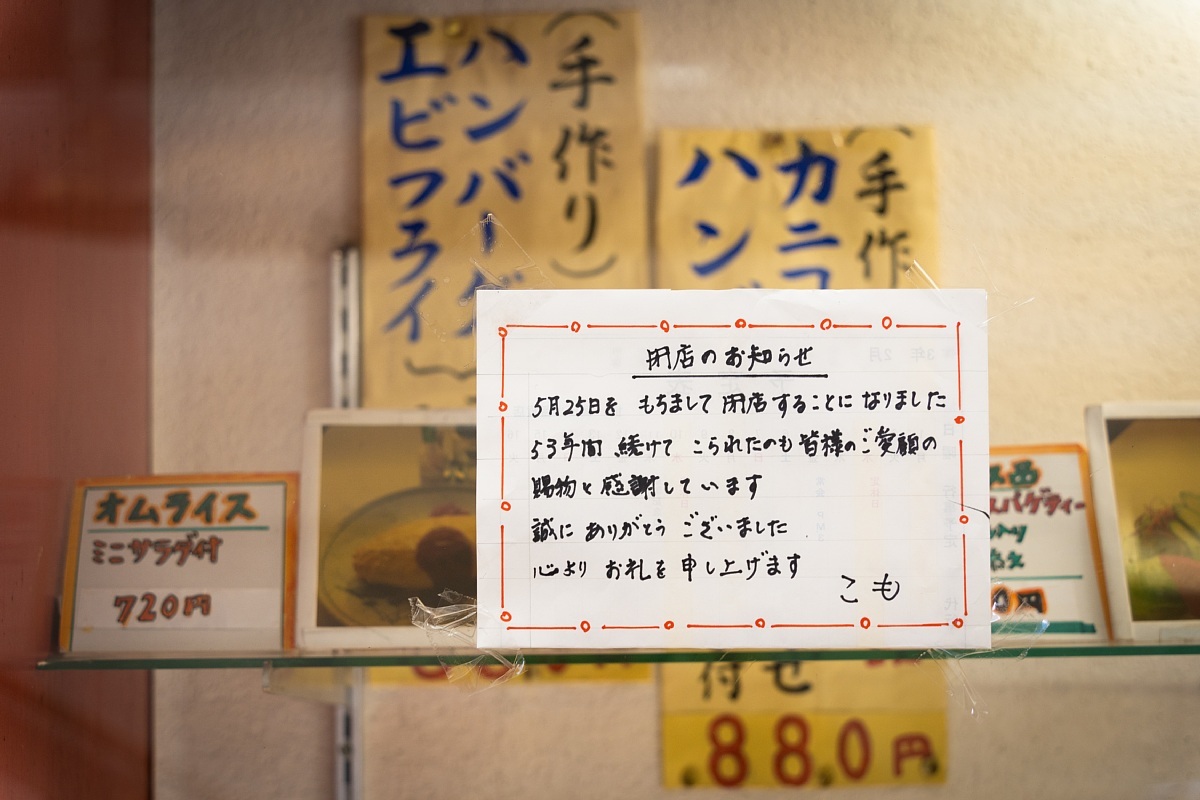 (手作り)
ハンバーグ
エビフライ
(手作
カニフ
ハン
閉店のお知らせ
5月25日を もちまして 閉店することに なりました
53年間 続けて こられたのも 皆様のご愛顧の
賜物と 感謝しています
誠に ありがとう ございました
心より お礼を 申し上げます
こも
オムライス
ミニサラダ付
720円
付せ
880円